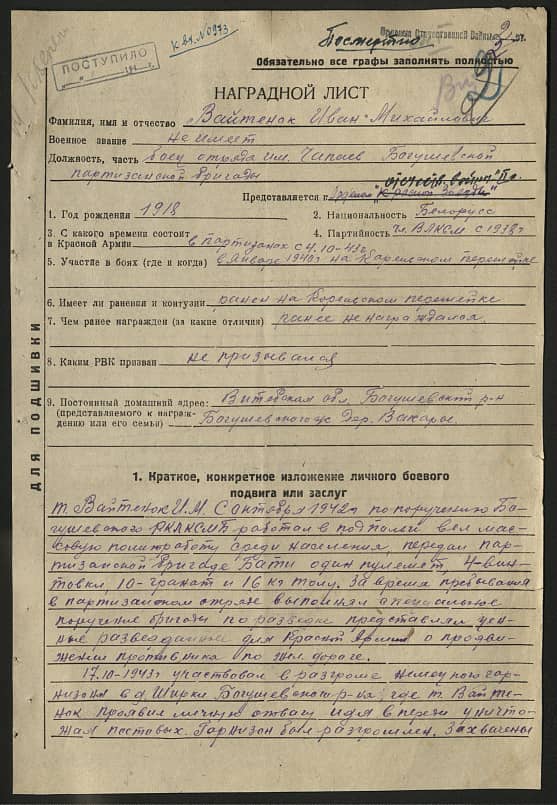 кви. №0973
ПОСТУПИЛО
194 г.
Посмертно
Ордена Отечественной Войны 2 ст.
Обязательно все графы заполнять полностью
НАГРАДНОЙ ЛИСТ
Фамилия, имя и отчество Вайтенок Иван Михайлович
Военное звание не имеет
Должность, часть боец отряда им. Чапаев Богушевской
партизанской бригады
Представляется к Отечеств. войны II ст.
ордена "Красная звезда"
1. Год рождения 1918
2. Национальность Белорусс
3. С какого времени состоит
в Красной Армии в партизанах с 4.10-43г
4. Партийность Чл. ВЛКСМ с 1938г
5. Участие в боях (где и когда) в Январе 1940г на Карельском перешейке
6. Имеет ли ранения и контузии ранен на Карельском перешейке
7. Чем ранее награжден (за какие отличия) ранее не награждался
8. Каким РВК призван не призывался
9. Постоянный домашний адрес: Витебская обл. Богушевский р-н
(представляемого к награж-
дению или его семьи) Богушевского с/с дер. Вакары
ДЛЯ ПОДШИВКИ
1. Краткое, конкретное изложение личного боевого
подвига или заслуг
т. Вайтенок И.М. С октября 1942г по поручению Бо-
гушевского РКЛКСМБ работал в подполье вел мас-
совую политработу среди населения, передал пар-
тизанской бригаде Бати один пулемет, 4-вин-
товки, 10-гранат и 16 кг толу. За время пребывания
в партизанском отряде выполнял специальное
поручение бригады по разведке представлял цен-
ные разведданные для Красной Армии о продви-
жении противника по жел. дороге.
17.10-1943г участвовал в разгроме немецкого гар-
низона в д. Ширки Богушевского р-на, где т. Вайте-
нок проявил личную отвагу идя в перёд уничто-
жая постовых. Гарнизон был разгромлен. Захвачены